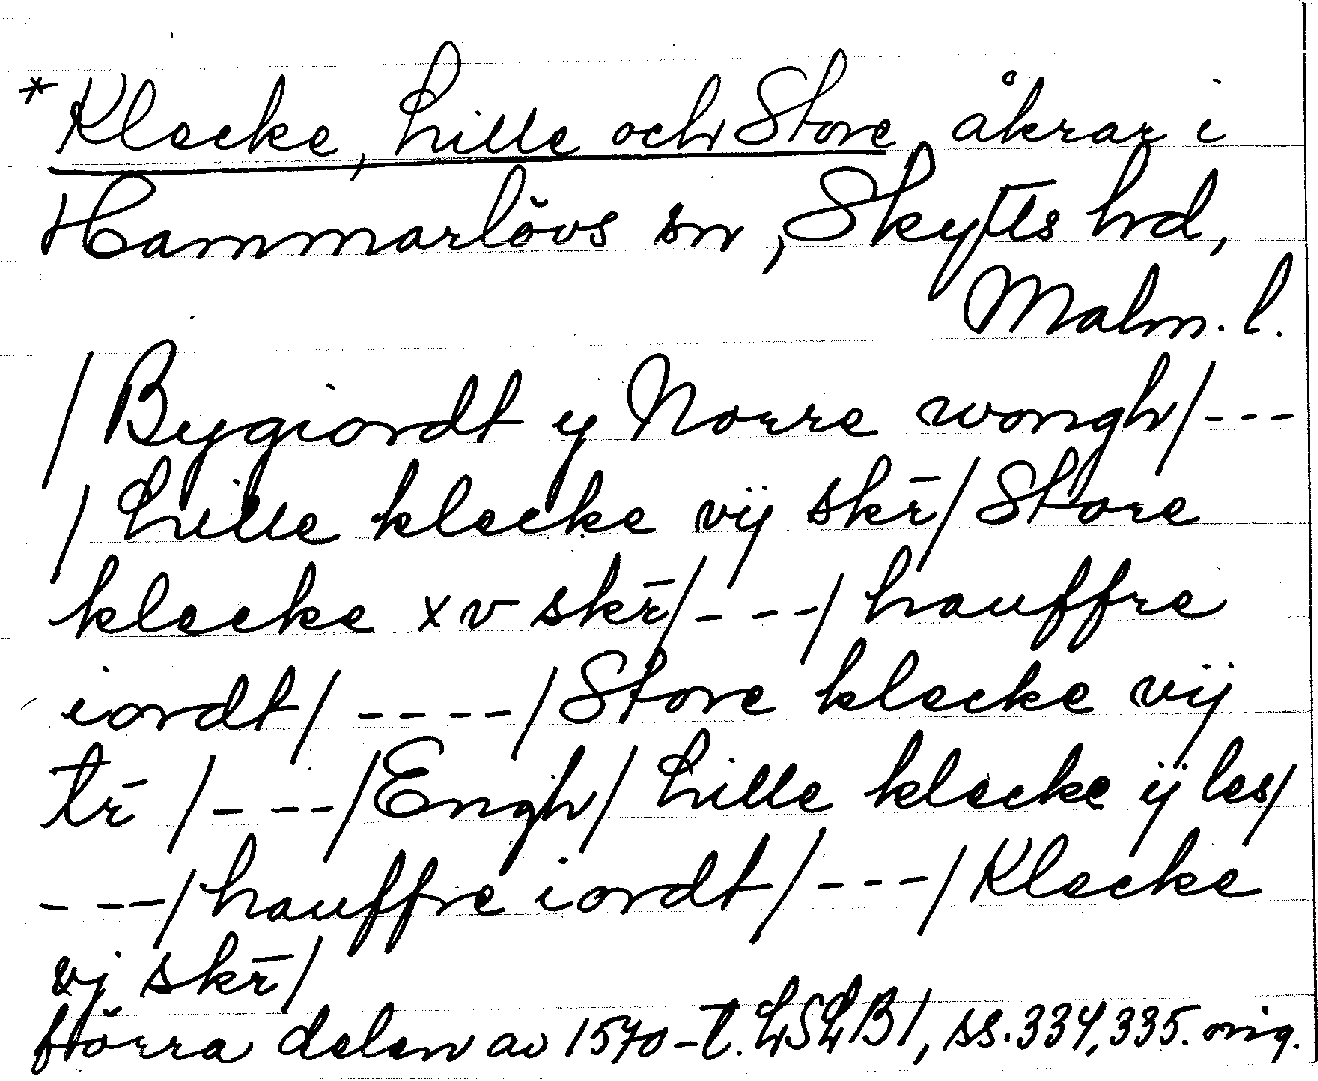 *Klecke, Lille och Store åkrar i
Hammarlövs sn, Skytts hd,
Malm. l.
/ Bygiordt y Norre wongh/---
/ Lille klecke vÿ skr̄/ Store
klecke xv skr̄/---/ hauffre
iordt/ ----/ Store klecke vÿ
tr̄ /---/ Engh/ Lille klecke ÿ les/
---/ hauffre iordt/---/ Klecke
vj skr̄/
förra delen av 1570-t. LSLB1, ss. 334, 335. orig.